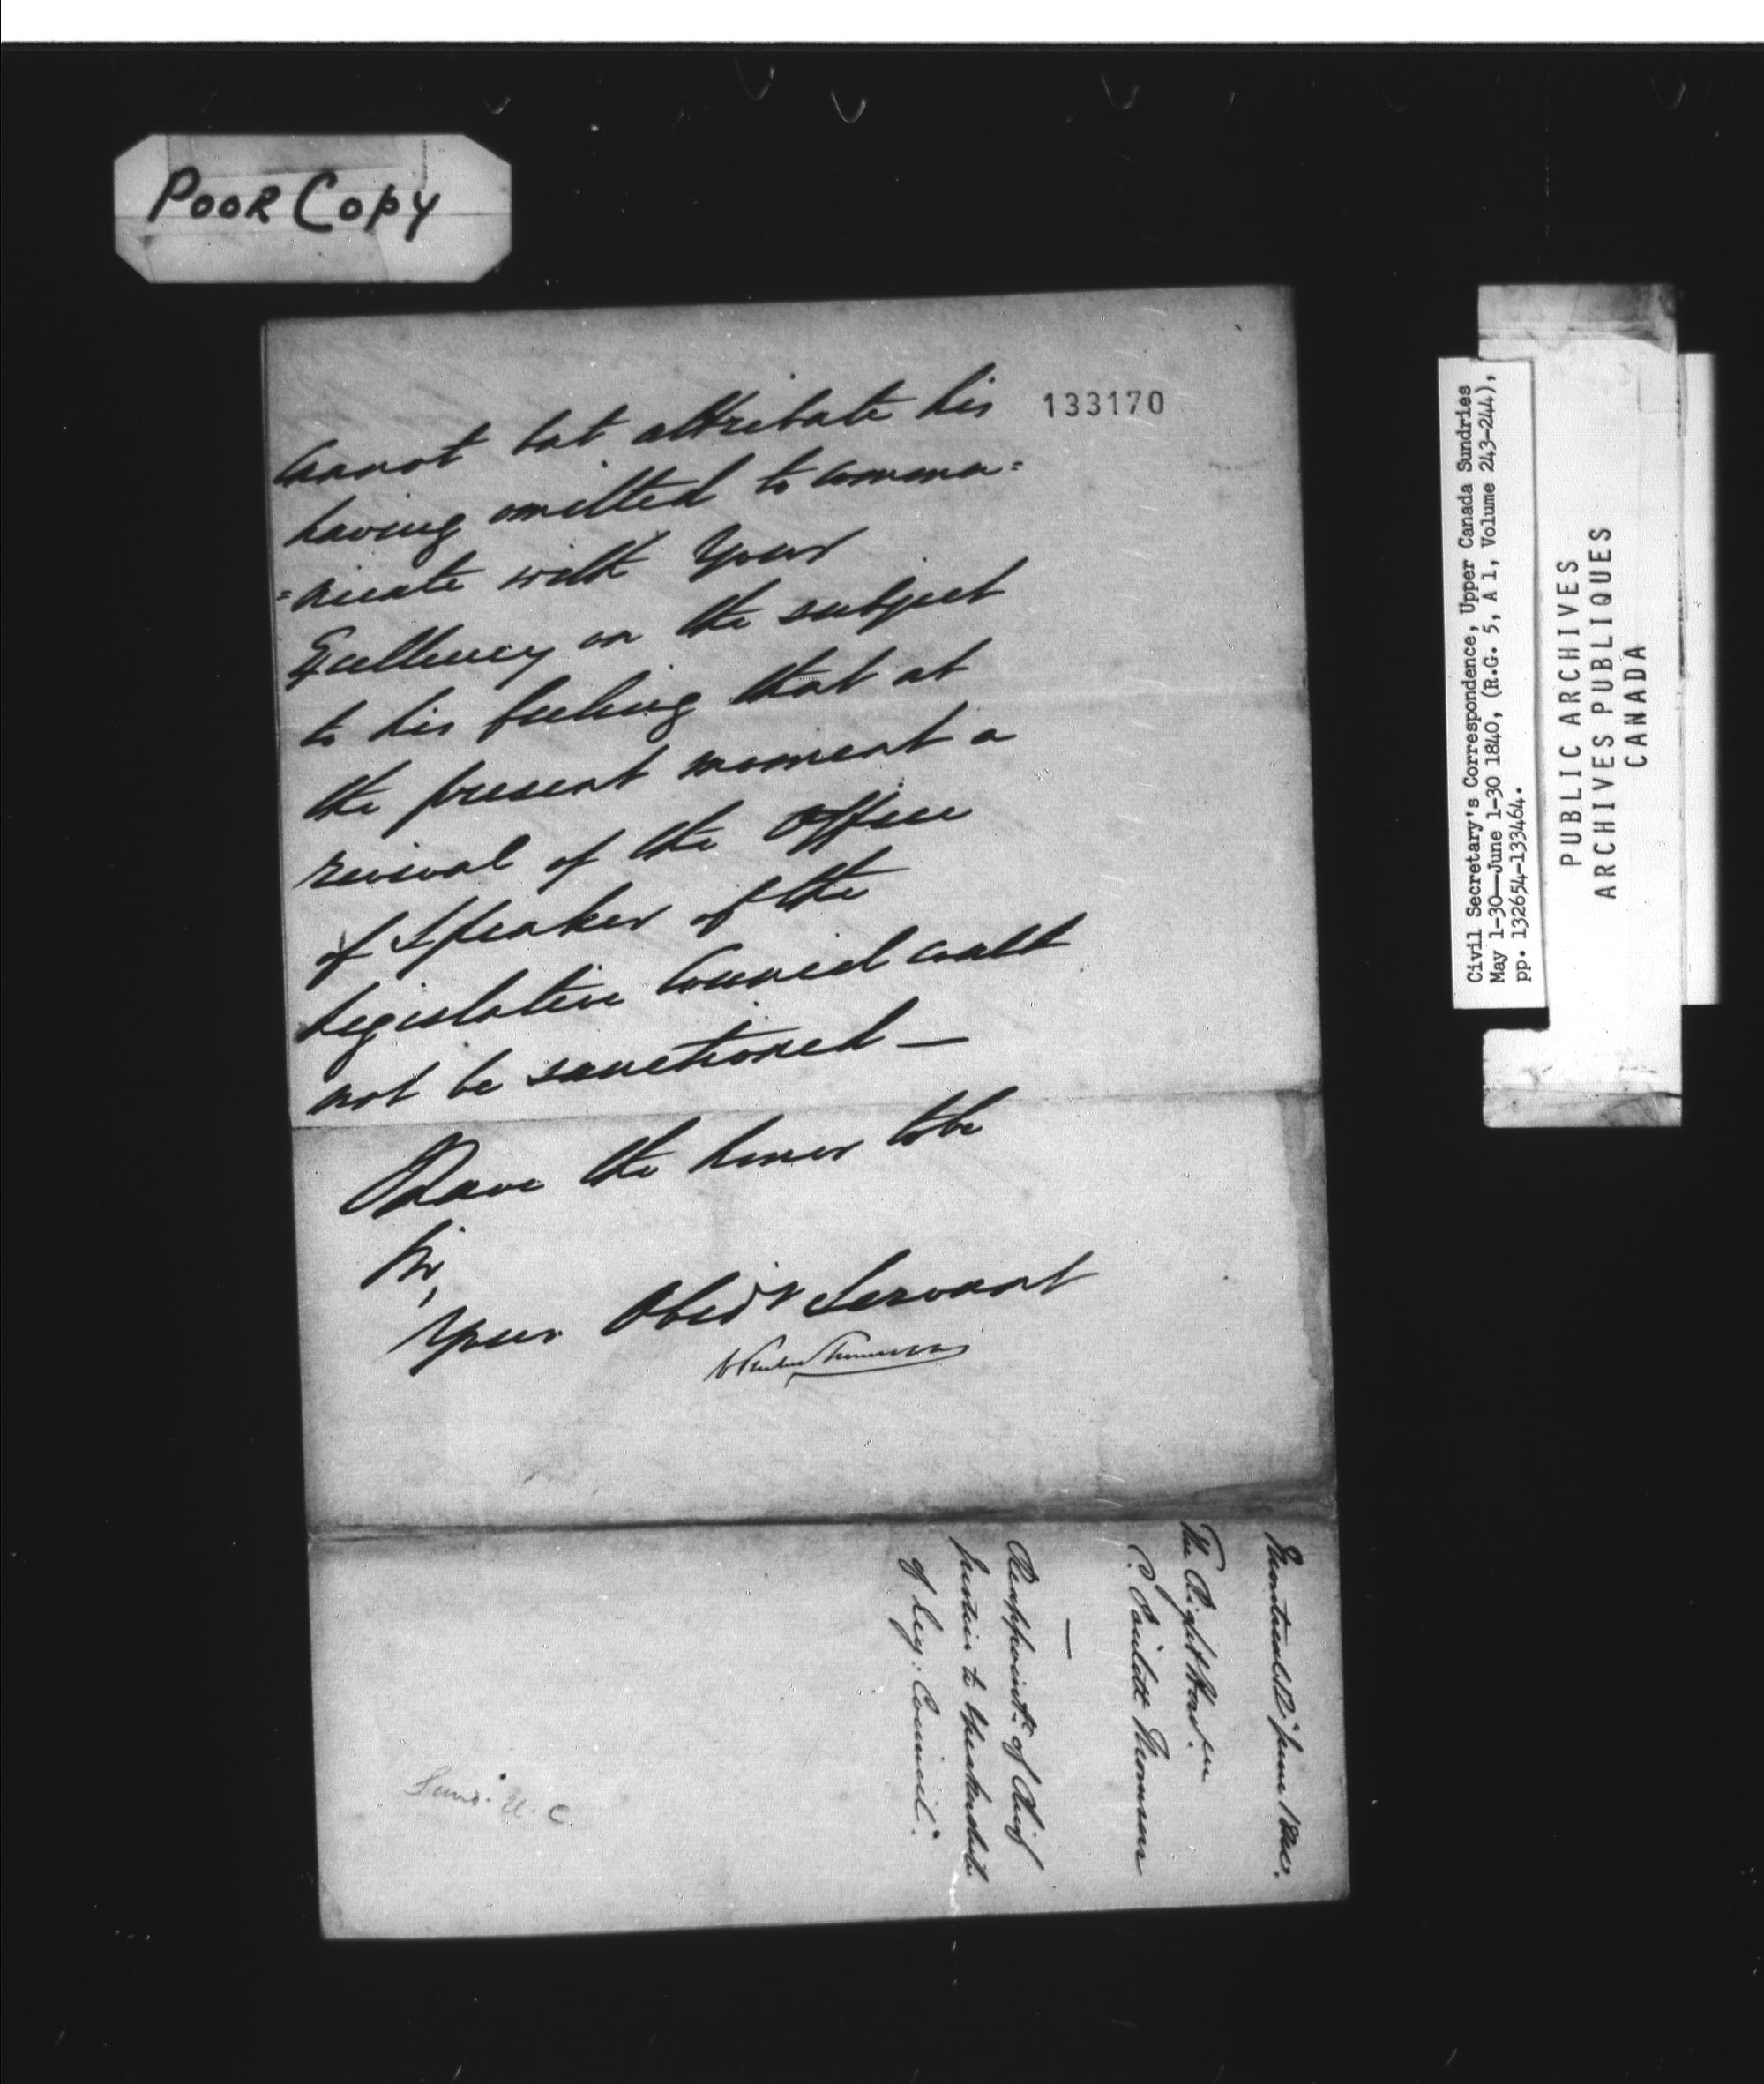 POOR COPY
133170
Cannot but attribute his
having omitted to commu=
=nicate with Your
Excellency on the subject
to his feeling that at
the present moment a
revival of the Office
of Speaker of the
Legislative Council could
not be sanctioned —
I have the honor to be
Sir,
Your Obedt Servant
Montreal 12 June 1840.
The Right Hon.
C. Poulett Thomson
—
Reappointt. of Chief
Justice to Speakership
of Leg: Council.
Sund. U. C.
Civil Secretary's Correspondence, Upper Canada Sundries
May 1-30—June 1-30 1840, (R.G. 5, A 1, Volume 243-244),
pp. 132654-133464.
PUBLIC ARCHIVES
ARCHIVES PUBLIQUES
CANADA